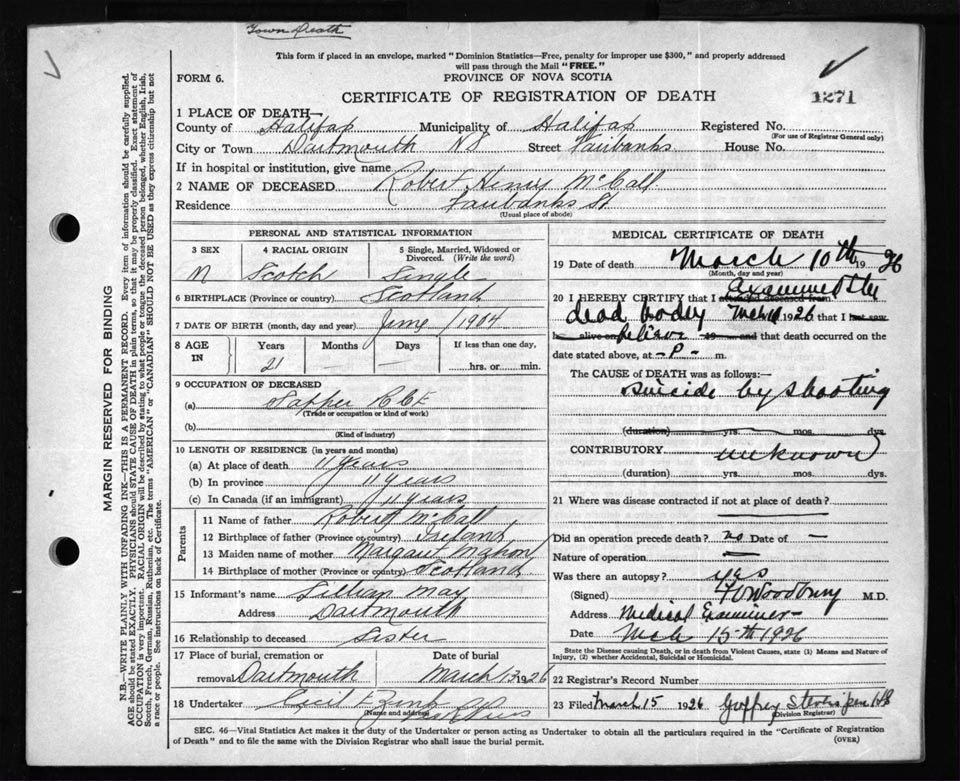 Town Death
This form if placed in an envelope, marked "Dominion Statistics—Free, penalty for improper use $300," and properly addressed
will pass through the Mail "FREE."
FORM 6.
PROVINCE OF NOVA SCOTIA
CERTIFICATE OF REGISTRATION OF DEATH
1271
1 PLACE OF DEATH—
County of Halifax Municipality of Halifax Registered No.
(For use of Registrar General only)
City or Town Dartmouth NS Street Fairbanks House No.
If in hospital or institution, give name
2 NAME OF DECEASED Robert Henry McCall
Residence Fairbanks St
(Usual place of abode)
PERSONAL AND STATISTICAL INFORMATION
3 SEX 4 RACIAL ORIGIN 5 Single, Married, Widowed or Divorced. (Write the word)
M Scotch Single
6 BIRTHPLACE (Province or country) Scotland
7 DATE OF BIRTH (month, day and year) June / 1904
8 AGE IN Years Months Days If less than one day,
21 — — hrs. or min.
9 OCCUPATION OF DECEASED
(a) Sapper RCE
(Trade or occupation or kind of work)
(b)
(Kind of industry)
10 LENGTH OF RESIDENCE (in years and months)
(a) At place of death 11 years
(b) In province 11 years
(c) In Canada (if an immigrant) 11 years
Parents
11 Name of father Robert McCall
12 Birthplace of father (Province or country) Ireland
13 Maiden name of mother Margaret Mahon
14 Birthplace of mother (Province or country) Scotland
15 Informant's name Lillian May
Address Dartmouth
16 Relationship to deceased Sister
17 Place of burial, cremation or removal Dartmouth Date of burial March 13 1926
18 Undertaker Cecil E Zink
(Name and address)
MEDICAL CERTIFICATE OF DEATH
19 Date of death March 10th 1926
(Month, day and year)
20 I HEREBY CERTIFY that I attended deceased from Examined the
dead body Mch 11 1926 that I last saw
h alive on believe 19 and that death occurred on the
date stated above, at - P - m.
The CAUSE of DEATH was as follows:—
Suicide by shooting
(duration) yrs. mos. dys.
CONTRIBUTORY unknown
(duration) yrs. mos. dys.
21 Where was disease contracted if not at place of death?
Did an operation precede death? no Date of —
Nature of operation —
Was there an autopsy? yes
(Signed) Woodbury M.D.
Address Medical Examiner
Date Mch 15th 1926
State the Disease causing Death, or in death from Violent Causes, state (1) Means and Nature of
Injury, (2) whether Accidental, Suicidal or Homicidal.
22 Registrar's Record Number
23 Filed March 15 1926 Geoffrey
(Division Registrar)
SEC. 46—Vital Statistics Act makes it the duty of the Undertaker or person acting as Undertaker to obtain all the particulars required in the "Certificate of Registration
of Death" and to file the same with the Division Registrar who shall issue the burial permit.
(OVER)
MARGIN RESERVED FOR BINDING
N.B.—WRITE PLAINLY WITH UNFADING INK—THIS IS A PERMANENT RECORD. Every item of information should be carefully supplied.
AGE should be stated EXACTLY. PHYSICIANS should STATE CAUSE OF DEATH in plain terms, so that it may be properly classified. Exact statement of
OCCUPATION is very important. RACIAL ORIGIN will be described by stating to what people or tongue the deceased person belonged, whether English, Irish,
Scotch, French, German, Russian, Ruthenian, etc. The terms "AMERICAN" or "CANADIAN" SHOULD NOT BE USED as they express citizenship but not
a race or people. See instructions on back of Certificate.